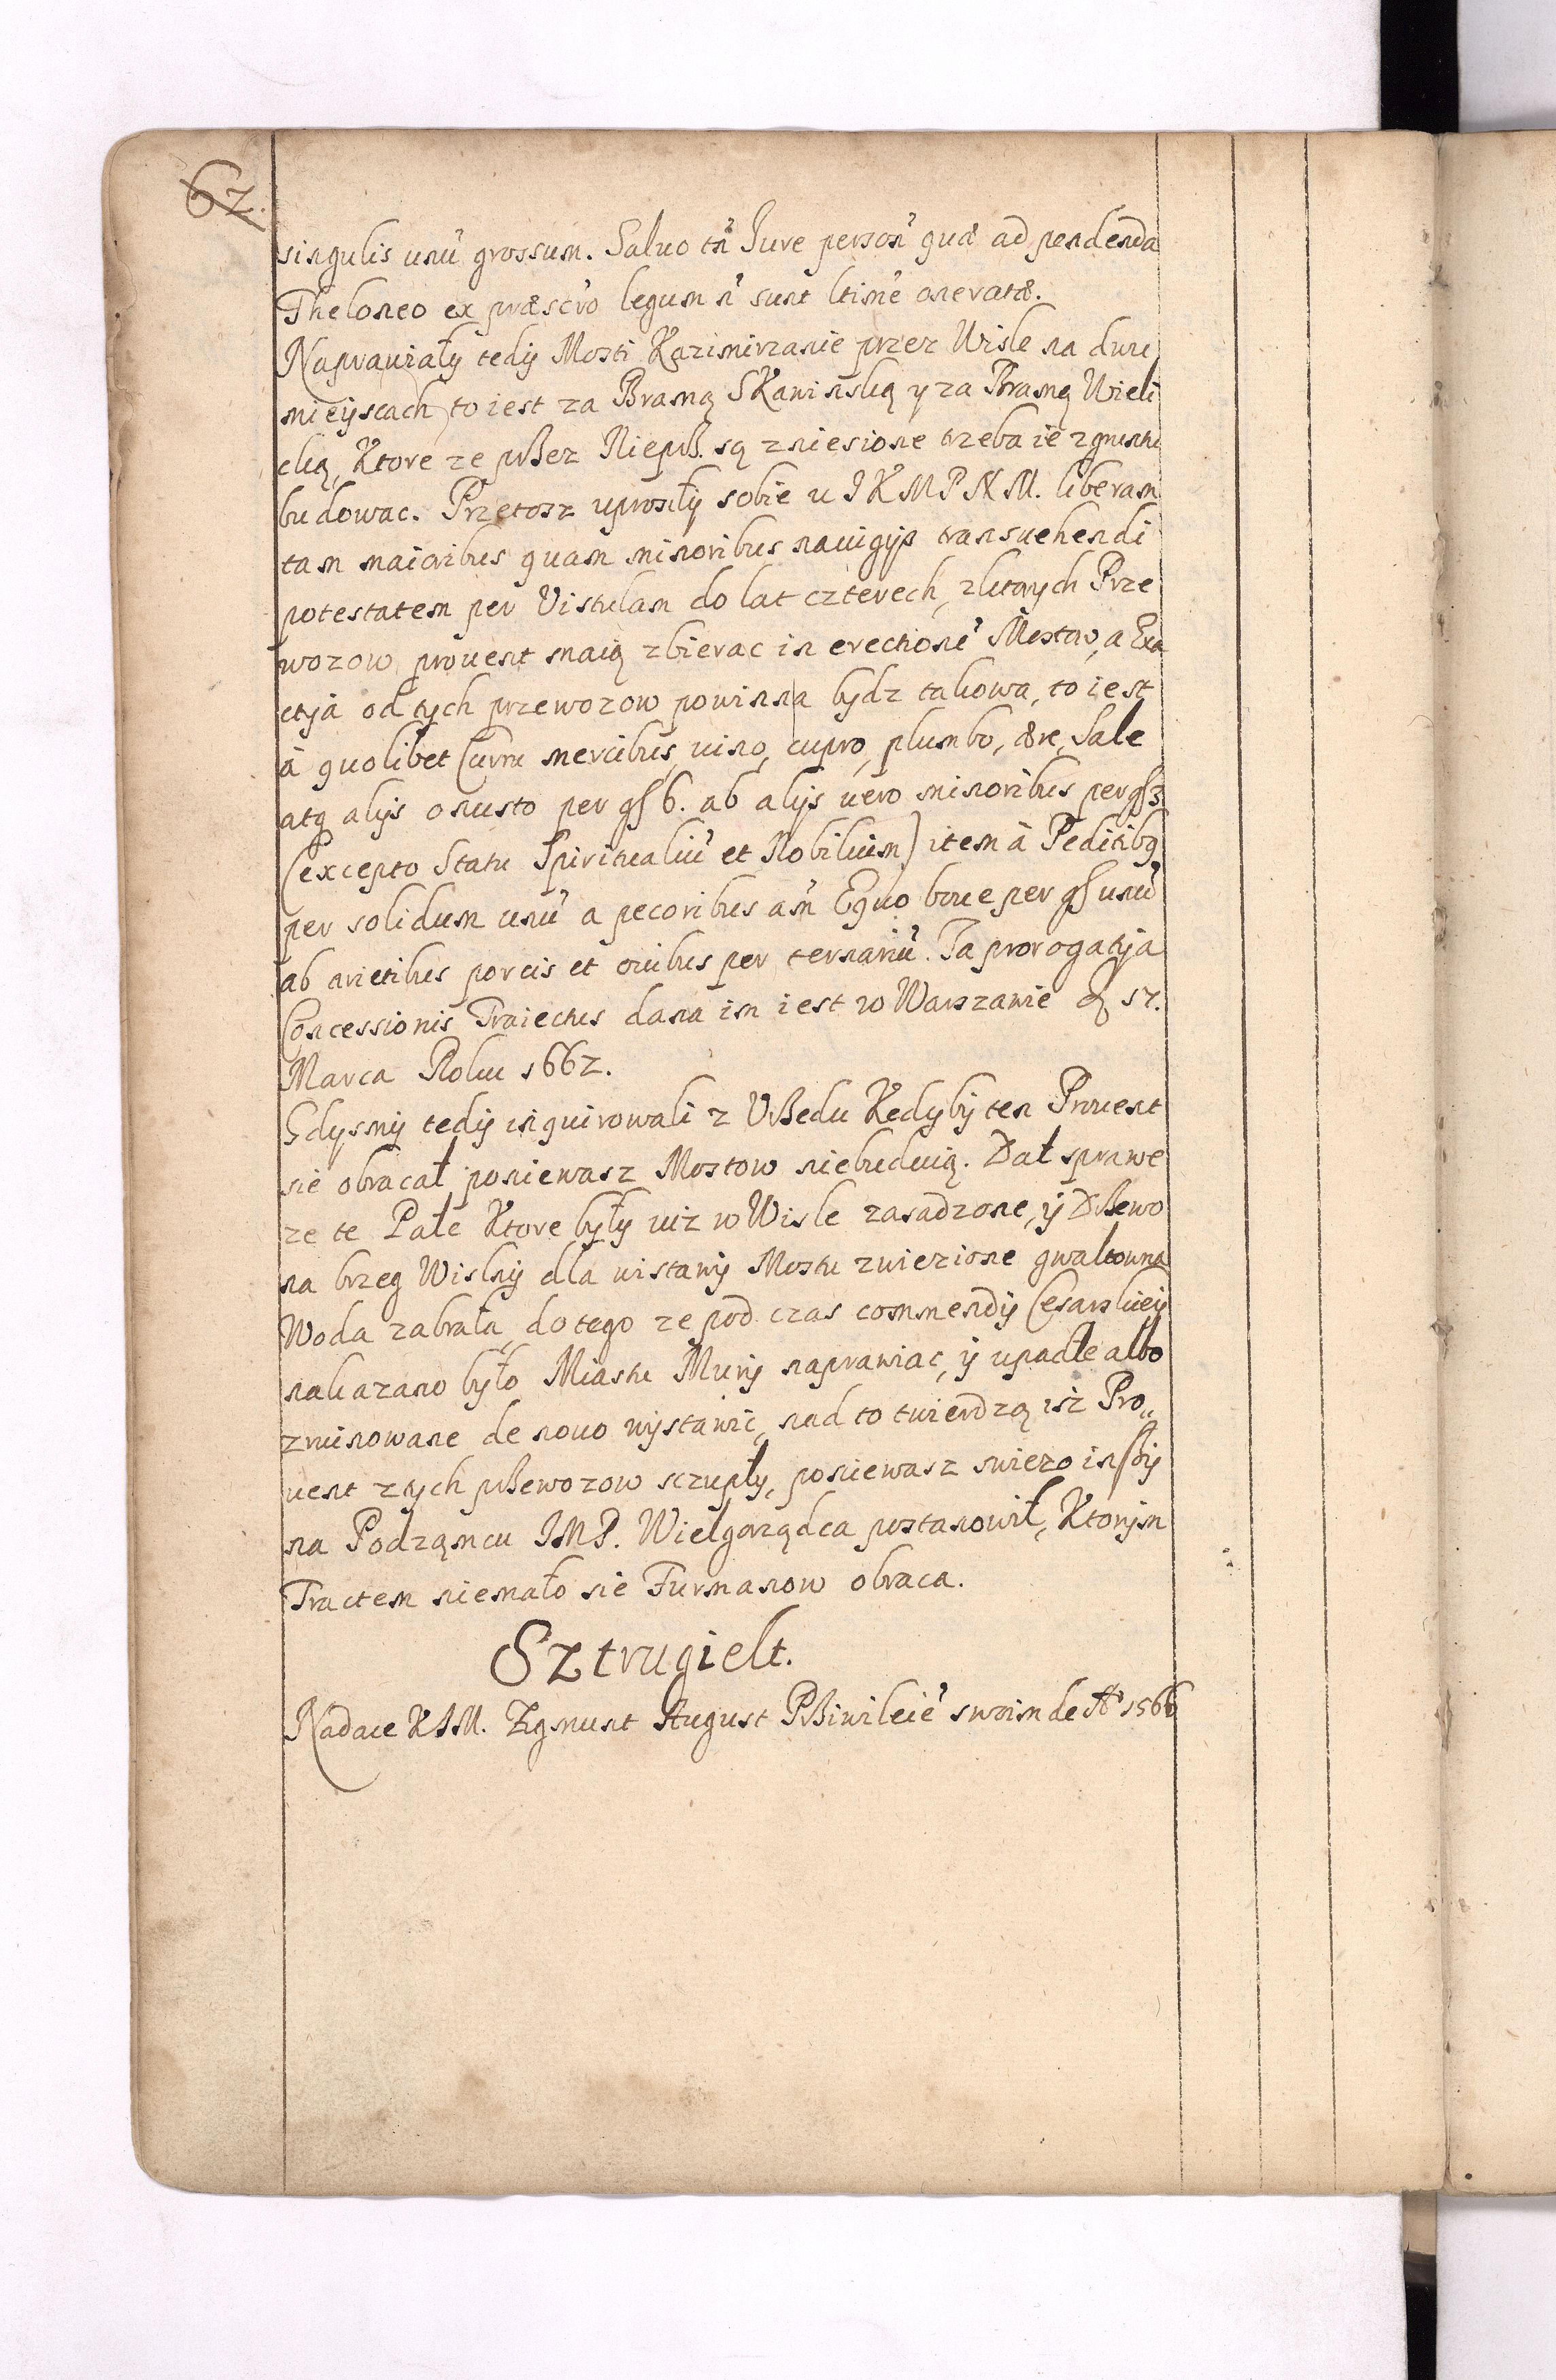 62.
singulis unũ grossum. Saluo tñ Jure person̉ quæ ad pendenda
Theloneo ex præscr̉o legum n̉ sunt ltime̊ oneratæ.
Naprawiały tedy Mosti Kazimirzanie przez Wisle na dwu
mieyscach, to iest za Bramą Skawinską y za Bramą Wieli
cką, Ktore ze pßez Niepß. są zniesione trzeba ie zgruntu
budowac. Przetosz uprosiły sobie u J K M P N M. liberam
tam maioribus quam minoribus nauigijs transuehendi
potestatem per Vistulam do lat czterech, zktorych Prze
wozow prouent maią zbierac in erectionẽ Mostow, a Exa
ctyá od tych przewozow powinna bydz takowa, to iest
à quolibet Curru mercibus, uino, cupro, plumbo, ære, Sale
atq alijs onusto per gſ 6. ab alijs uero minoribus per gſ 3
(excepto Statu Spiritualiũ et Nobilium) item à Peditibq
per solidum unũ a pecoribus am̃ Equo boue per gſ unũ
ab arietibus porcis et ouibus per ternariũ. Ta prorogatya
Concessionis Traiectus dana im iest w Warszawie d 17.
Marca Roku 1662.
Gdysmy tedy inquirowali z Vßedu Kedyby ten Prouent
sie obracał poniewasz Mostow niebuduią. Dał sprawe
ze te Pale Ktore były iuz w Wisle zasadzone, y Dßewo
na brzeg Wislny dla wistawy Mostu zwiezione gwałtowna
Woda zabrała, do tego ze pod czas commendy Cesarskiey
nakazano było Miastu Mury naprawiac, y upadłe albo
zruinowane de nouo wystawic, nad to twierdzą isz Pro„
uent ztych pßewozow sczupły, poniewasz swiezo inſzy
na Podzamcu JMP. Wielgorządca postanowił, Ktorym
Tractem niemało sie Furmanow obraca.
Sztrugielt.
Nadaie KJM. Zigmunt August Pßiwileie̊ swoim de Å 1566